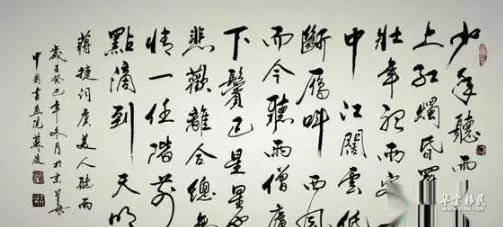 少年聽雨
上紅燭昏羅
壯年聽雨客
中江闊雲低
斷雁叫西風
而今聽雨僧廬
下鬢已星星也
悲歡離合總無
情一任階前
點滴到天明
蔣捷詞虞美人聽雨
歲在癸巳年
中國書畫院
华宇移民